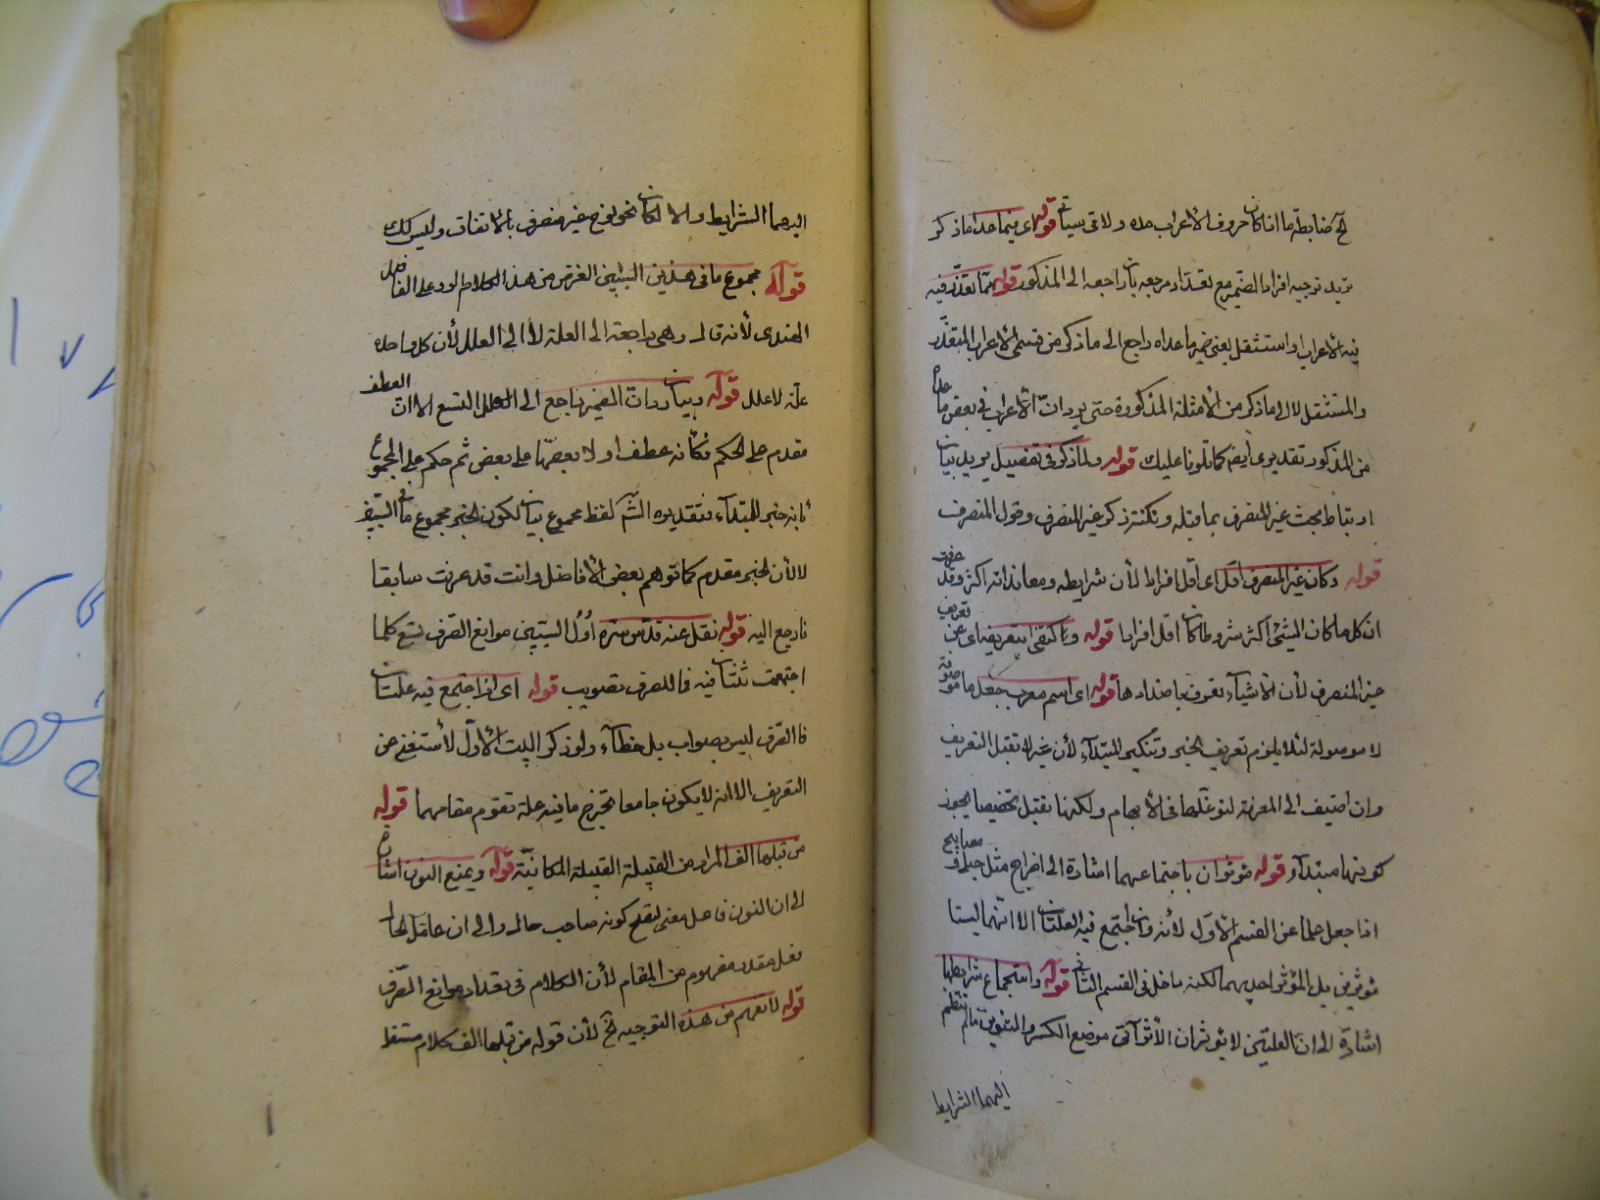 لح ضابطة ما اذا كان حروف الاعراب حده ولا في سيأتي قوله اى فيما عدا ما ذكر
يريد توجيه افراد الضمير مع تعدد مرجعه بان راجعه الى المذكور قوله مما تعذر فيه
فيه الاعراب او استثقل يعنى ضمير ما عداه راجع الى ما ذكر من قسمى الاعراب المتعذر
والمستثقل لا الى ما ذكر من الأمثلة المذكورة حتى يرد ان الاعراب فى بعض ما عداه
من المذكور تقديرى ايضا كما تلونا عليك قوله ولما ذكر فى تفصيل يريد بيان
ارتباط مبحث غير المنصرف بما قبله ونكتة ذكر غير المنصرف وقول المنصرف
قوله وكان غير المنصرف اقل اى اقل افرادا لأن شرايطه ومعانداته اكثر وقد عرفت
ان كل ما كان الشئ اكثر شروطا كان اقل افرادا قوله واكتفى بتعريفه اى عن تعريف
المنصرف لأن الأشياء تعرف باضدادها قوله اى اسم معرب جعل ما موصوفة
لا موصولة لئلا يلزم تعريف الخبر وتنكير المبتداء لأن غير لا تقبل التعريف
وان اضيف الى المعرفة لتوغلها فى الابهام ولكنها تقبل تخصيصا يجوز
كونها مبتداء قوله مؤثران باجتماعهما اشارة الى اخراج مثل حبلى ومصابيح
اذا جعل علما عن القسم الأول لأنه وان اجتمع فيه العلتان الا انهما ليستا
مؤثرين بل المؤثر احديهما لكنه داخل فى القسم الثانى قوله واستجماع شرايطها
اشارة الى ان العلتين لا يؤثران الأثر آتى موضع الكسر والتنوين مالم تنظم
اليهما الشرايط
اليهما الشرايط والا لكان نحو نوح غير منصرف بالاتفاق وليس كك
قوله مجموع ما فى هذين البيتين الغرض من هذا الكلام الرد على الفاضل
الهندى لأنه قال وهى راجعة الى العلة لا الى العلل لأن كل واحدة
علة لا علل قوله وبيان ردان الضمير راجع الى العلل التسع الا ان العطف
مقدم على الحكم فكأنه عطف اولا بعضها على بعض ثم حكم على المجموع
بانه خبر للمبتداء فتقديره الش لفظ مجموع بيان لكون الخبر مجموع ما فى البيتين
لا لأن الخبر مقدم كما توهم بعض الأفاضل وانت قد عرفت سابقا
فارجع اليه قوله نقل عنه قدس سره اول البيتين موانع الصرف تسع كلما
اجتمعت ثنتان فيه فما للصرف تصويب قوله اى اذا اجتمع فيه علتان
فالصرف ليس بصواب بل خطاء ولو ذكر البيت الأول لأستغنى عن
التعريف الا انه لا يكون جامعا لخروج ما فيه علة تقوم مقامهما قوله
من قبلها الف المراد من القبيلة القبيلة المكانية قوله ويمنع النون اشارة
الى ان النون فاعل معنى ليصح كونه صاحب حال والى ان عامل الحال
فعل مقدر مفهوم من المقام لأن الكلام فى تعداد موانع الصرف
قوله لا يفهم من هذه التوجيه لح لأن قوله من قبلها الف كلام مستقل